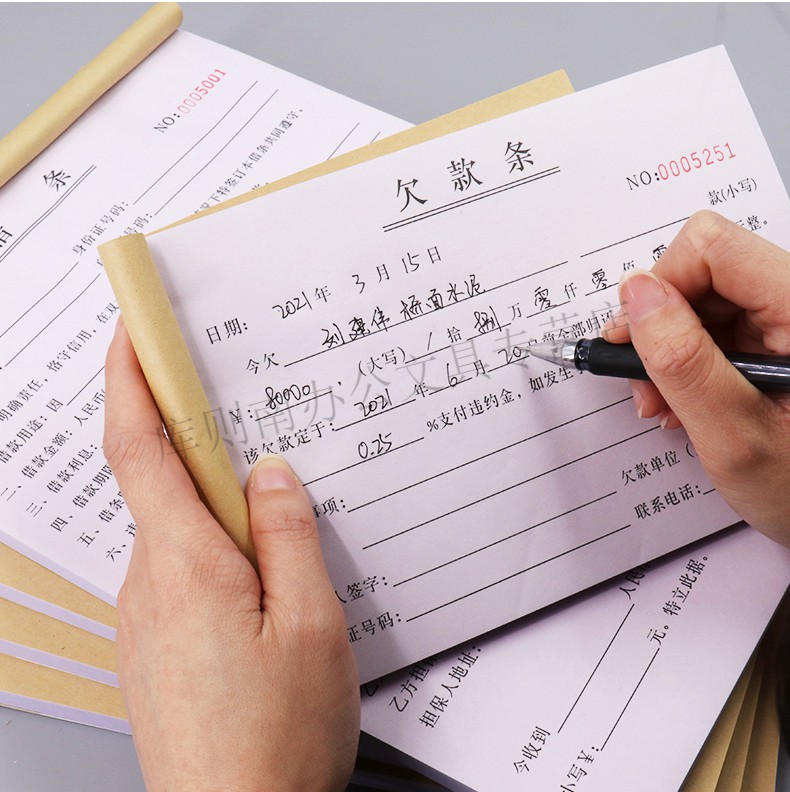 条
NO:0005001
身份证号码:
号码:
况下特签订本借条共同遵守。
明确责任，恪守信用，在双
借款用途：因
二、借款金额：人民币
三、借款利息：
四、借款期限
五、借条
六、
欠款条
NO:0005251
日期： 2021年 3月 15日
今欠 刘建伟 桥面水泥 款(小写)
¥：80000 ，(大写) / 拾 捌 万 零 仟 零 佰 元整。
该欠款定于：2021 年 6 月 20 日前全部归还
0.25 %支付违约金，如发生
事项：
欠款单位（
人签字：
联系电话：
证号码：
库则南办公文具专营店
乙方担保
担保人地址：
人民
今收到
元。特立此据。
小写¥：